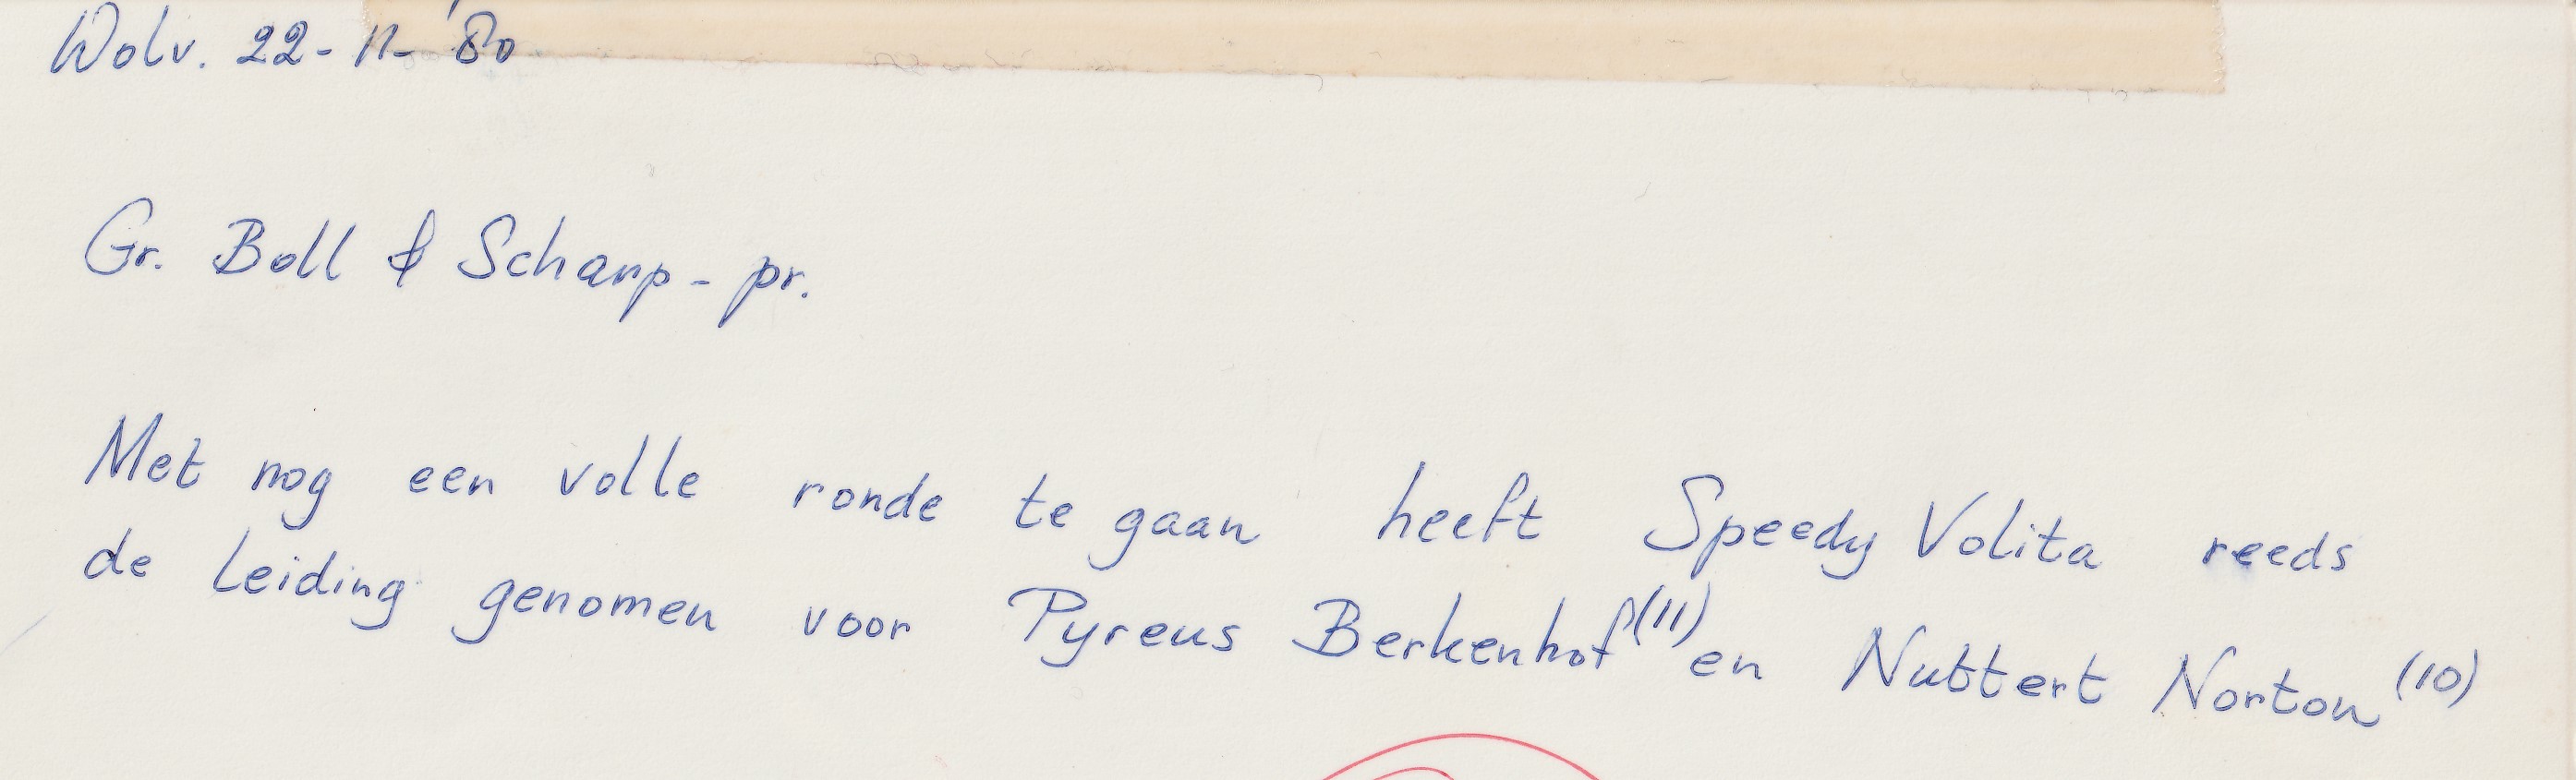 Wolv. 22-11-'80
Gr. Boll & Scharp-pr.
Met nog een volle ronde te gaan heeft Speedy Volita reeds
de leiding genomen voor Pyreus Berkenhof (11) en Nuttert Norton (10)